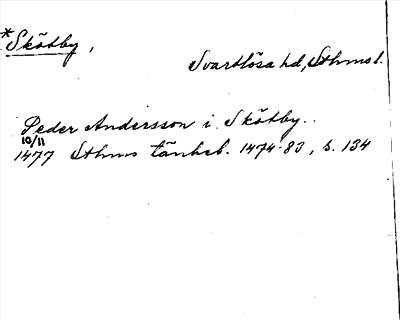 *Skötby,
Svartlösa hd, Sthms l.
Peder Andersson i Skötby..
10/11
1477 Sthms tänkeb. 1474-83, s. 134